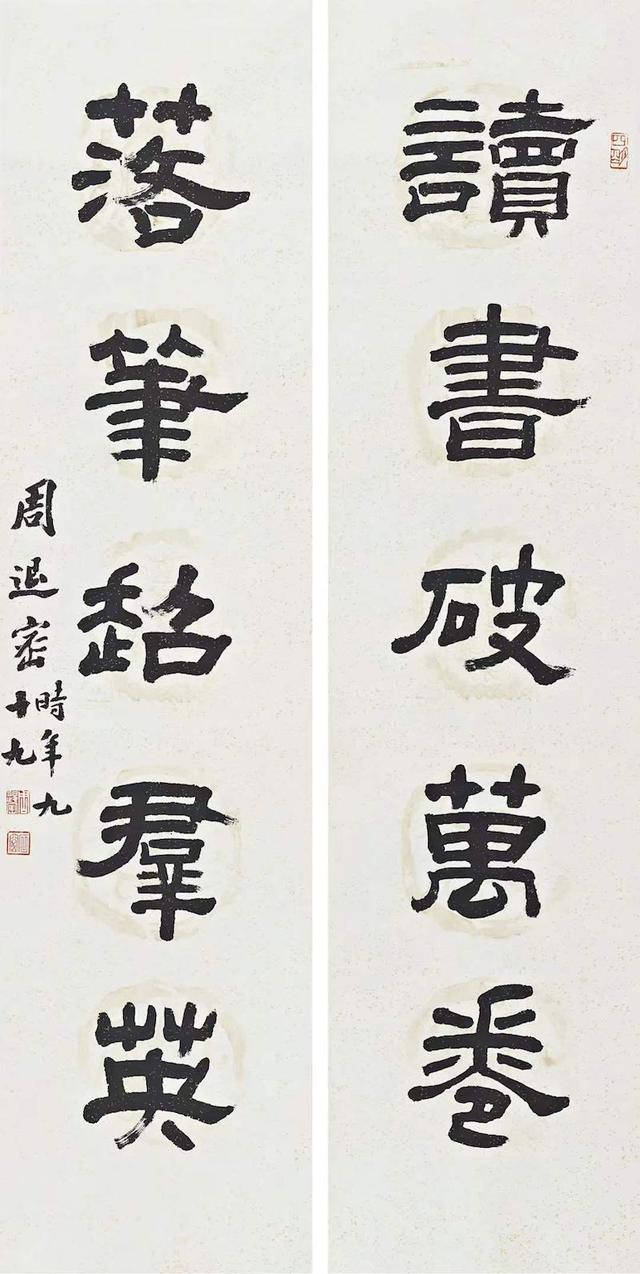 四明
讀書破萬卷
落筆超羣英
周退密
時年九
十九